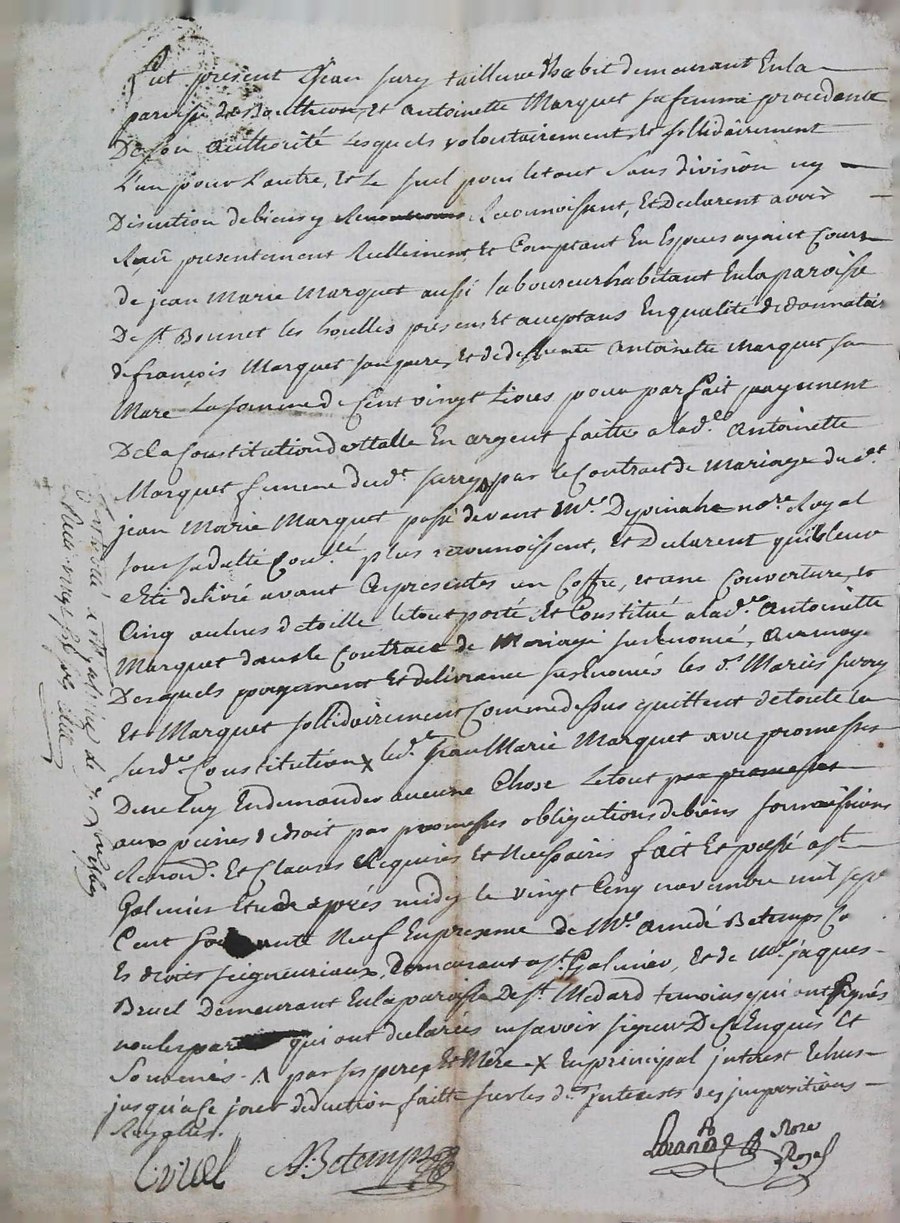 Fut present Jean Surry tailleur d'habit demeurant En la
paroisse de Boutheon, et Antoinette Marquet sa femme procedante
De son authorité Lesquels volontairement, et sollidairement
L'un pour L'autre, Et Le seul pour le tout sans division ny
Discution de biens y Reconnoissent, Et Declarent avoir
Reçû presentement Reellement Et Comptant En Especes ayant Cours
de jean Marie Marquet aussi laboureur habitant En la paroisse
De st. Bonnet les houlles present Et acceptans En qualité de donnataire
de françois Marquet son pere, et de deffunte Antoinette Marquet sa
Mare La somme de Cent vingt Livres pour parfait payement
De la Constitution dottalle En argent faitte a lad.e Antoinette
Marquet femme dud.t Surry, par le Contrat de Mariage dud.t
jean Marie Marquet passé devant Me. Depinahc no.re Royal
sous sa datte Con.lé plus reconnoissent, Et Declarent qu'il leur
a Eté delivré avant Ces presentes un Coffre, et une Couverture, et
Cinq aulnes de toille le tout porté Et Constitué a lad.e Antoinette
Marquet dans le Contract de Mariage susEnomé, au moyen
Desquels payement Et delivrance susEnomés les d.s Mariés Surry
Et Marquet sollidairement Comme dessus quittent de toute la
susd.e Constitution x led.t Jean Marie Marquet avec promesses
De ne luy En demander aucune Chose Le tout par promesses
aux peines de droit par promesses obligations de biens soumissions
Renon.s Et Clauses Requises Et Necessaires fait Et passé a st.
Galmier Etude après midy le vingt Cinq novembre mil sept
Cent soixante Neuf En presence de Me. Amedé Betemps
Es droits seigneuriaux, Demeurant a st. Galmier, Et de Me. jaques
Bruel Demeurant En la paroisse De st. Medard temoins qui ont signés
non les parties qui ont declarées ne savoir signer De Ce Enquis Et
Sommés. A par ses pere, Et Mère x En principal interest Echus
jusqu'a Ce jour deduction faitte sur les d.s interests des impositions
Royalles.
Bruel A. Betemps
Nore
Royal
a st. galmier le 7